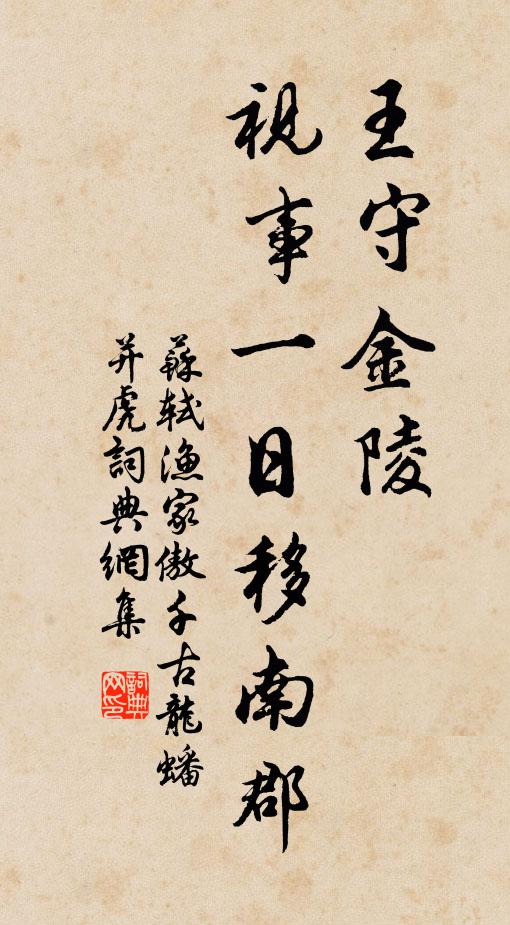 王守金陵
視事一日移南郡
蘇軾漁家傲千古龍蟠
并虎詞典網集
詞典网印